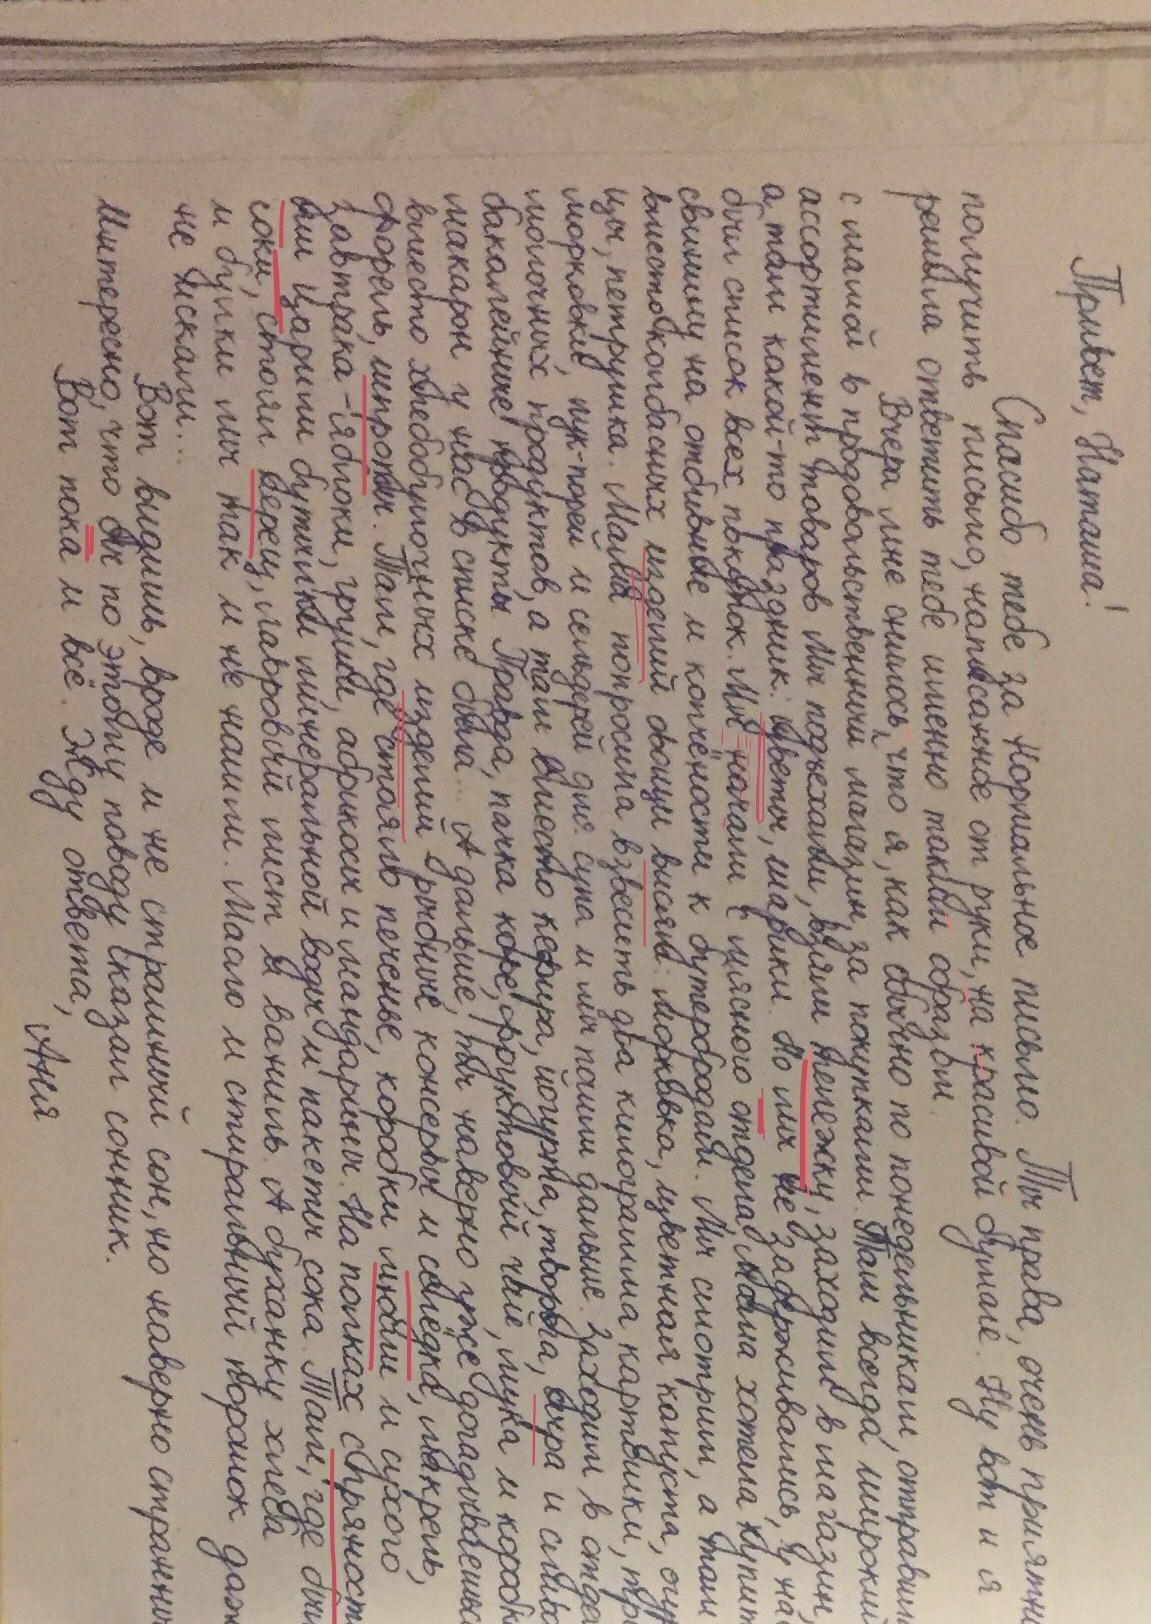 Привет, Наташа!
Спасибо тебе за нормальное письмо. Ты права, очень приятн
получить письмо, написанное от руки, на красивой бумаге. Ну вот и я
решила ответить тебе именно таким образом.
Вчера мне снилось, что я, как обычно по понедельникам, отправил
с мамой в продовольственный магазин за покупками. Там всегда широкий
ассортимент товаров. Мы подъехали, взяли тележку, заходим в магазин,
а там какой-то праздник: цветы, шарики. Но мы не задерживались, у на
был список всех покупок. Мы начали с мясного отдела. Мама хотела купит
свинину на отбивные и копчёности к бутербродам. Мы смотрим, а там
вместо колбасных изделий овощи висят: морковка, цветная капуста, огур
цы, петрушка. Мама попросила взвесить два килограмма картошки, пр
морковки, лук-порей и сельдерей для супа и мы пошли дальше. Заходим в отде
молочных продуктов, а там вместо кефира, йогурта, творога, сыра и сливо
бакалейные продукты. Правда, пачка кофе, фруктовый чай, мука и короб
макарон у нас в списке была... А дальше, ты наверно уже догадываешь
вместо хлебобулочных изделий рыбные консервы и селёдка, макрель,
форель, шпроты. Там, где стояло печенье, коробки мюсли и сухого
завтрака - яблоки, груши, абрикосы и мандарины. На полках с пряност
ями царили бутылки минеральной воды и пакеты сока. Там, где был
соки, стоял перец, лавровый лист и ваниль. А буханку хлеба
и булки мы так и не нашли. Мыло и стиральный порошок даж
не искали...
Вот видишь, вроде и не страшный сон, но наверно странны
Интересно, что бы по этому поводу сказал сонник.
Вот пока и всё. Жду ответа,
Аня